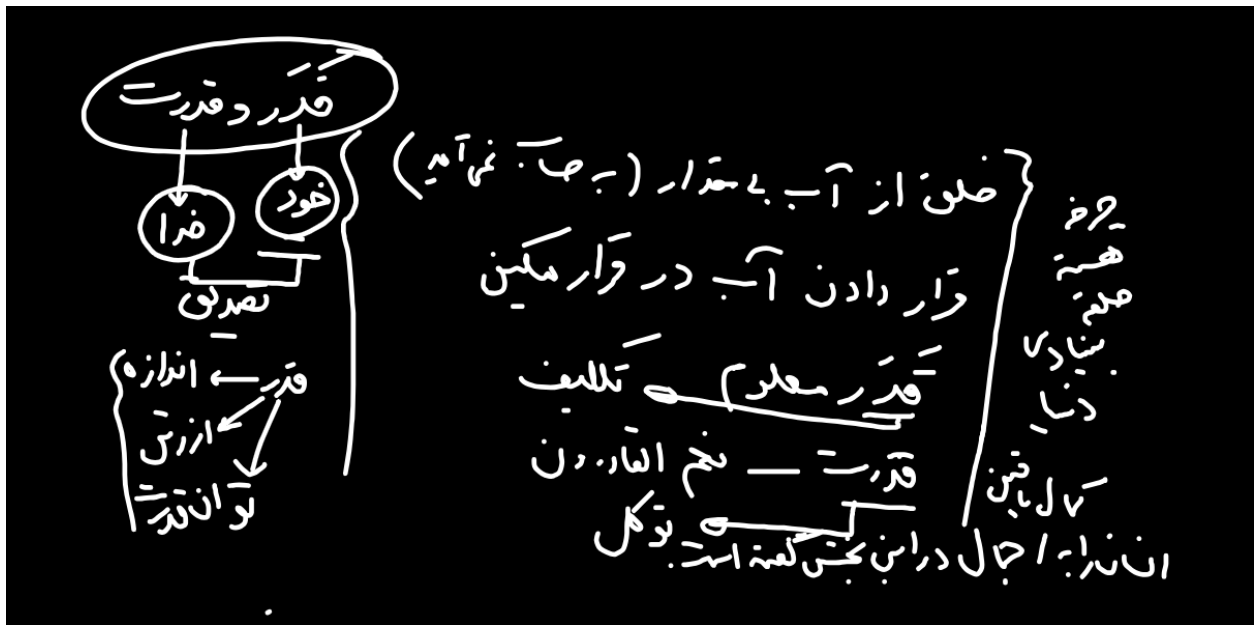 قَدَر و قدرت
خود
خدا
تصدیق
قدر ← اندازه
ارزش
توان قدرت
خلق از آب بی مقدار (به حساب نمی آمدید)
قرار دادن آب در قرار مکین
قَدَر معلوم تکلیف
قدرت — نعم القادرون
توکل
چرخه
هستی
خلقت
بنیادی
دنیا
کمال یافتن
انسان را به اجمال در این بخش گفته است.